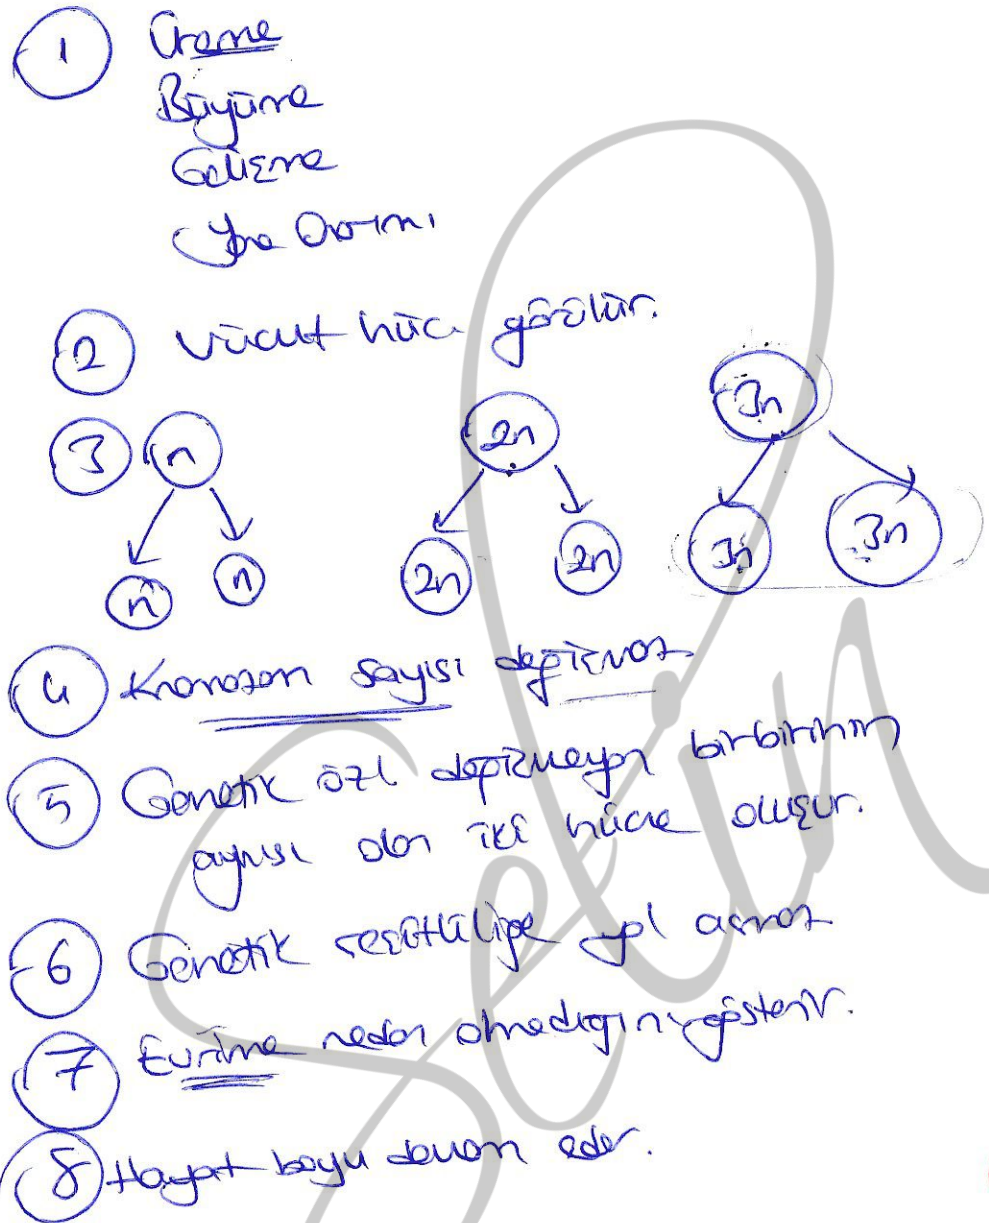 1 Üreme
Büyüme
Gelişme
Yara Onarımı
2 Vücut hüc. görülür.
3 n 2n 3n
n n 2n 2n 3n 3n
4 Kromozom sayısı değişmez.
5 Genetik özl değişmeyen birbirinin
aynısı olan iki hücre oluşur.
6 Genetik çeşitliliğe yol açmaz
7 Evrime neden olmadığını gösterir.
8 Hayat boyu devam eder.
Selin